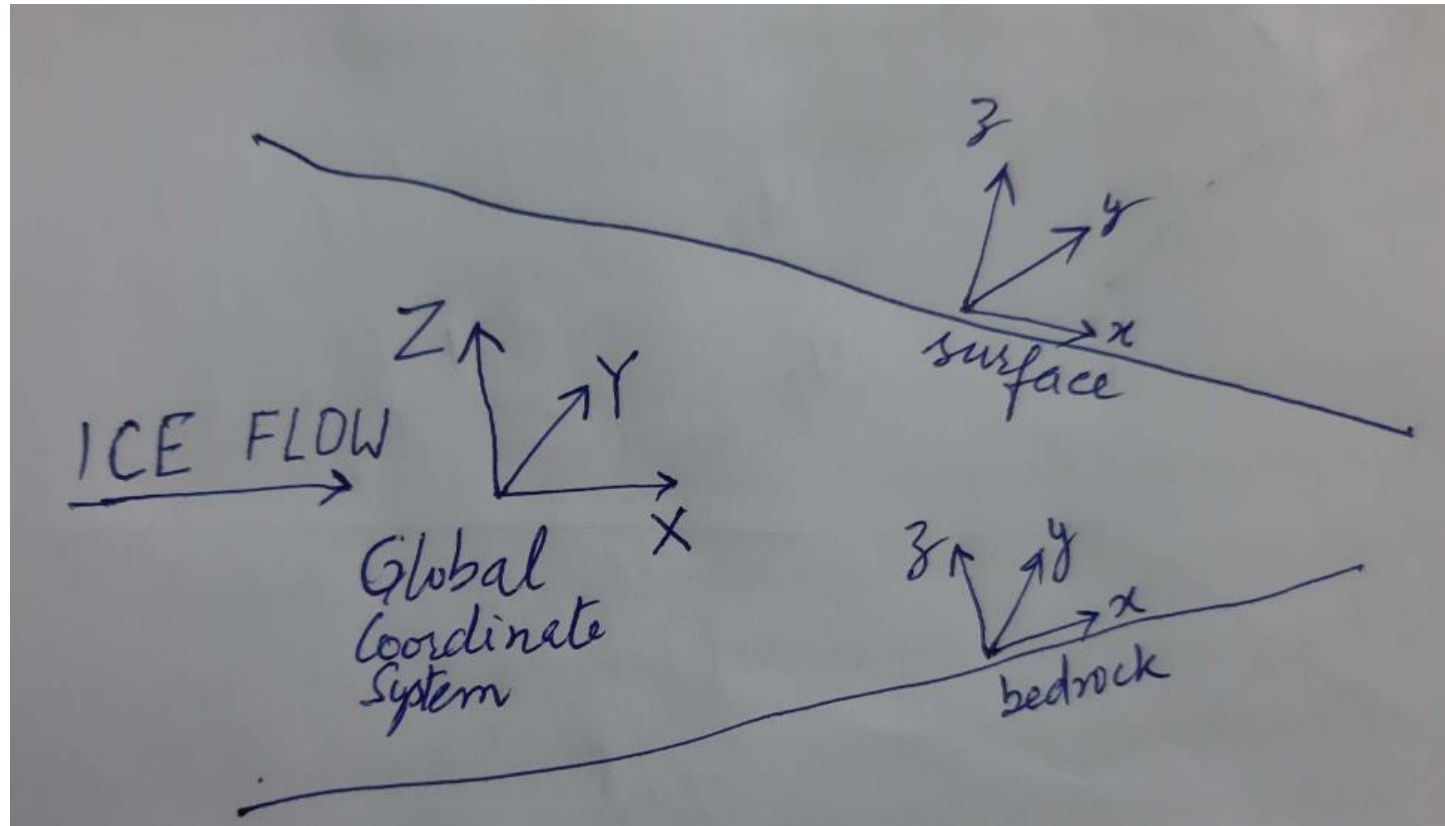 z
y
x
surface
Z
Y
X
ICE FLOW
Global
Coordinate
System
z
y
x
bedrock